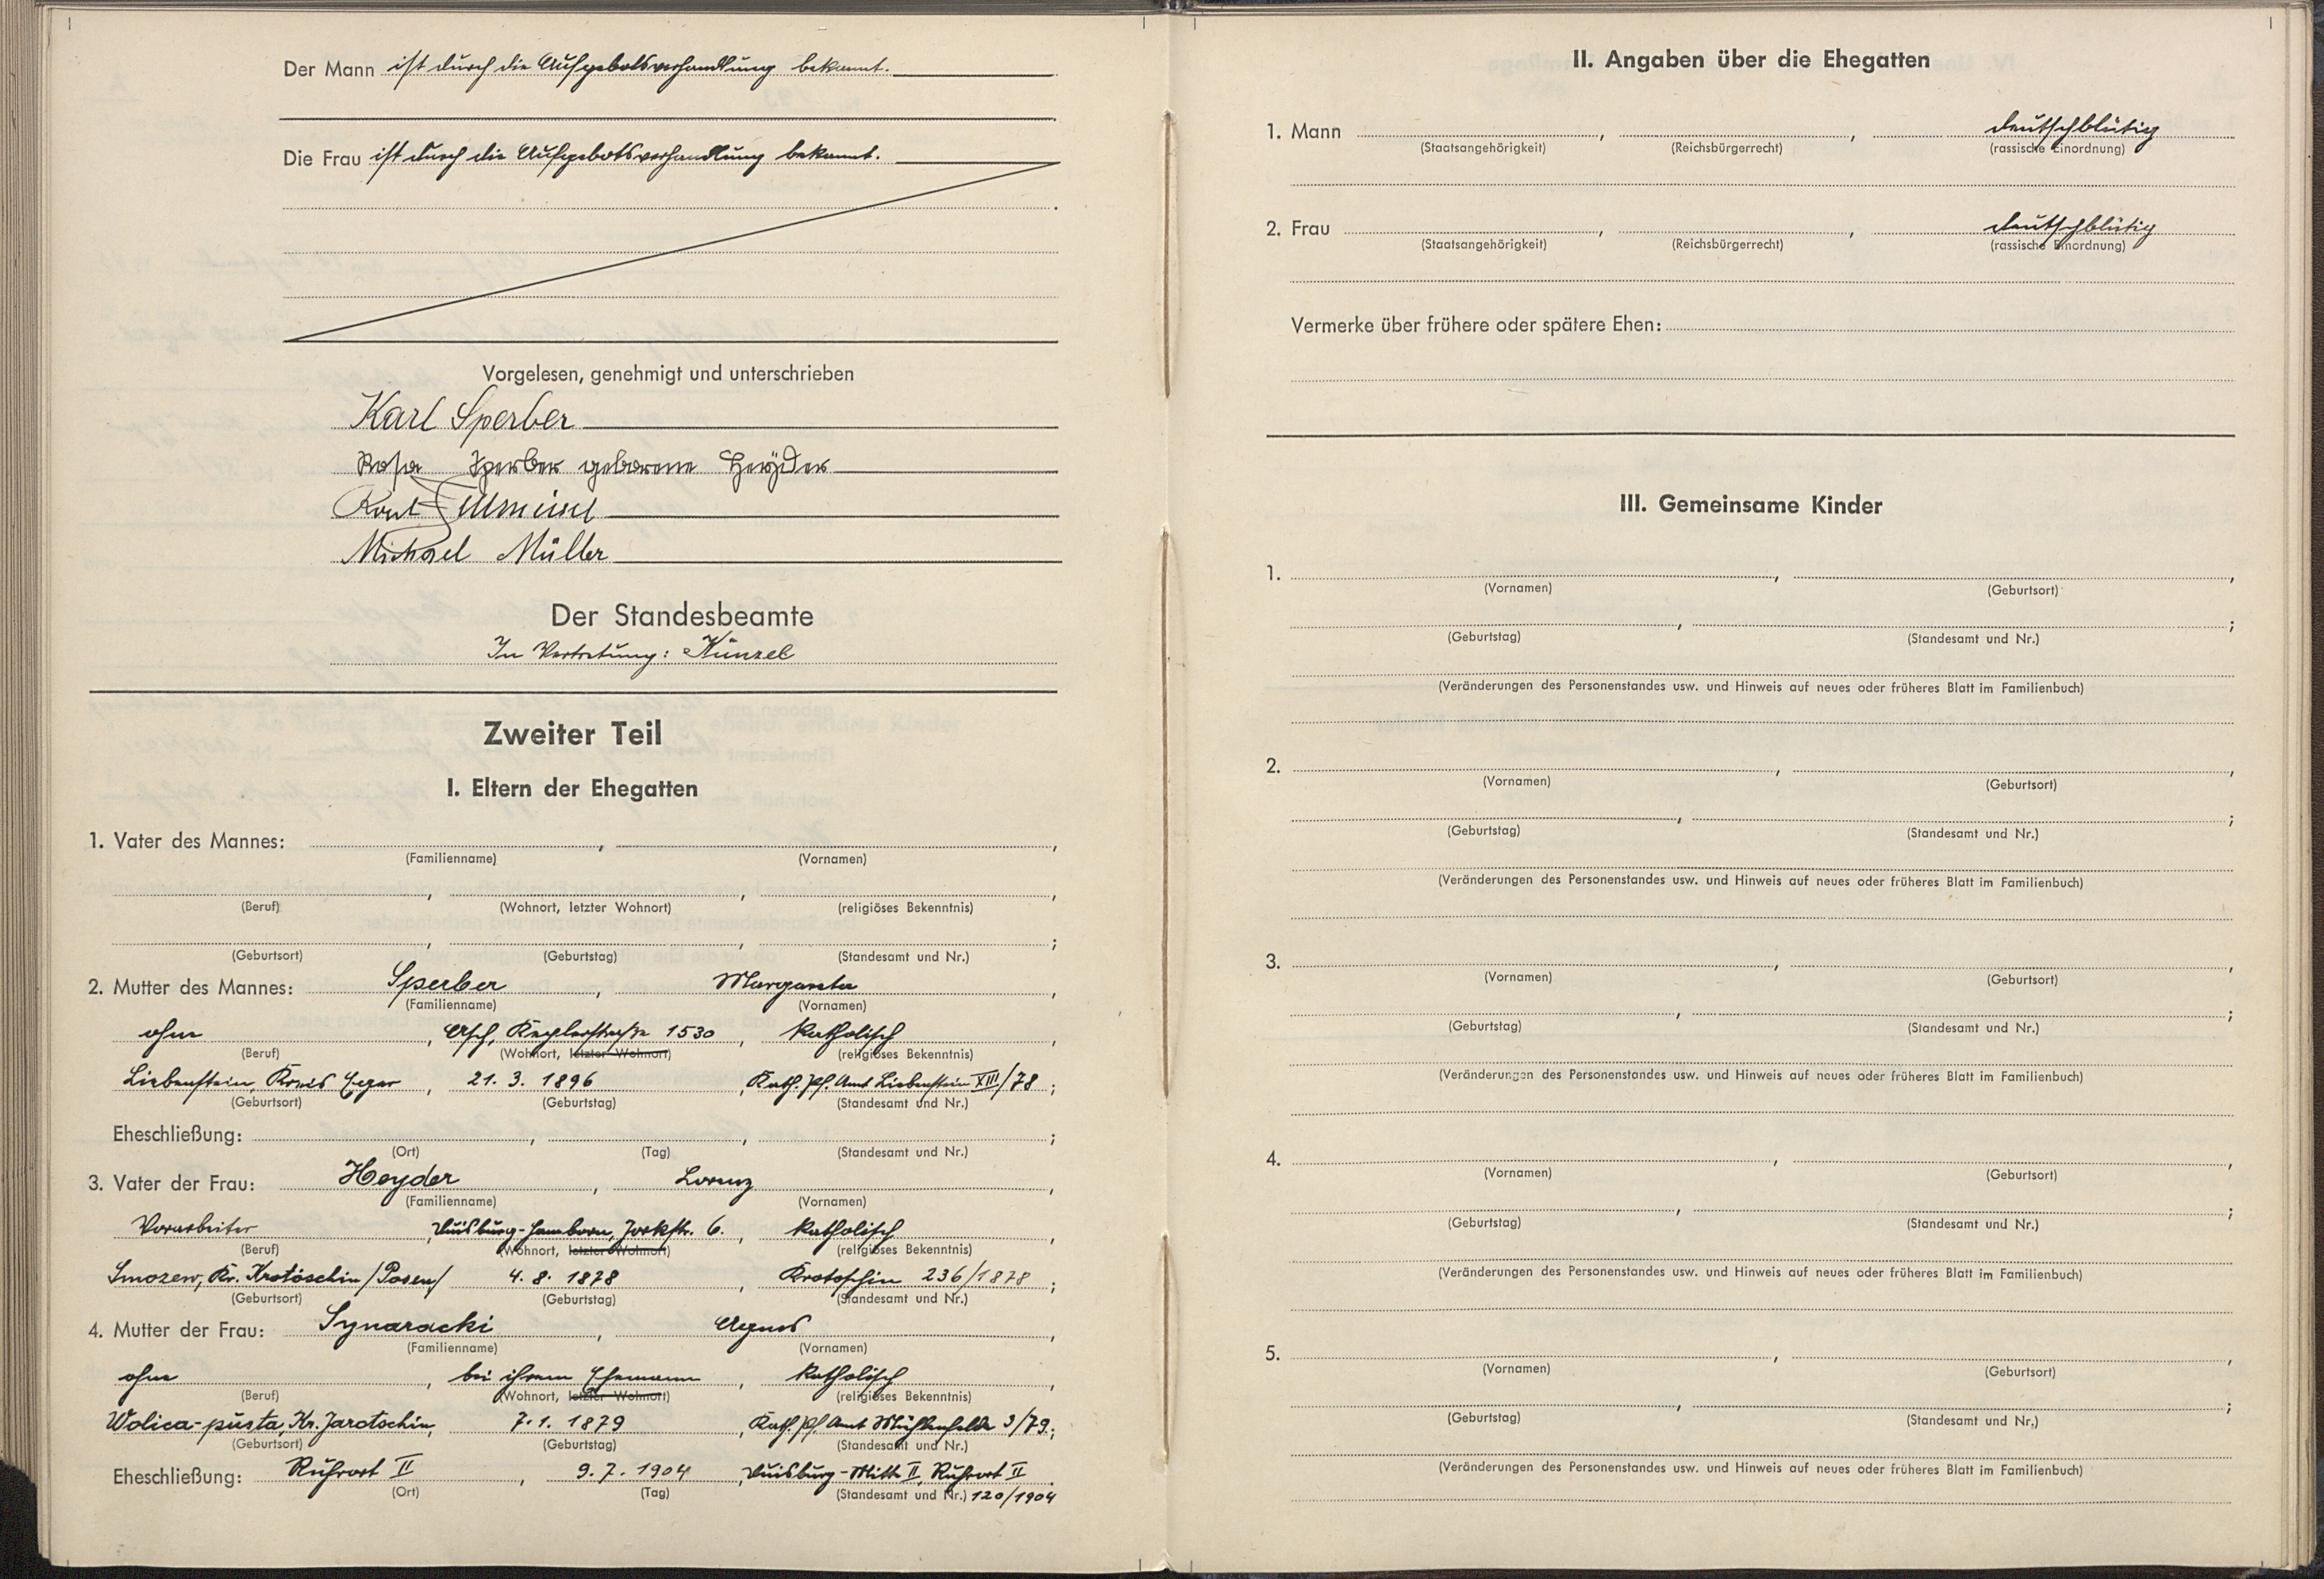 Der Mann ist durch die Aufgebotsverhandlung bekannt.
Die Frau ist durch die Aufgebotsverhandlung bekannt.
Vorgelesen, genehmigt und unterschrieben
Karl Sperber
Rosa Sperber geborene Heyder
Michael Müller
Der Standesbeamte
In Vertretung: Künzel
Zweiter Teil
I. Eltern der Ehegatten
1. Vater des Mannes: , ,
(Familienname) (Vornamen)
, , ,
(Beruf) (Wohnort, letzter Wohnort) (religiöses Bekenntnis)
, , ;
(Geburtsort) (Geburtstag) (Standesamt und Nr.)
2. Mutter des Mannes: Sperber , Margareta ,
(Familienname) (Vornamen)
ohne , Asch, Keplerstraße 1530 , katholisch ,
(Beruf) (Wohnort, letzter Wohnort) (religiöses Bekenntnis)
Liebenstein, Kreis Eger , 21. 3. 1896 , Kath. Pf. Amt Liebenstein XIII/78 ;
(Geburtsort) (Geburtstag) (Standesamt und Nr.)
Eheschließung: , , ;
(Ort) (Tag) (Standesamt und Nr.)
3. Vater der Frau: Heyder , Lorenz ,
(Familienname) (Vornamen)
Vorarbeiter , Duisburg-Hamborn, Jorkstr. 6. , katholisch ,
(Beruf) (Wohnort, letzter Wohnort) (religiöses Bekenntnis)
Smozew, Kr. Krotoschin /Posen/ 4. 8. 1878 , Krotoschin 236/1878 ;
(Geburtsort) (Geburtstag) (Standesamt und Nr.)
4. Mutter der Frau: Synaracki , Agnes ,
(Familienname) (Vornamen)
ohne , bei ihrem Ehemann , katholisch ,
(Beruf) (Wohnort, letzter Wohnort) (religiöses Bekenntnis)
Wolica-pusta, Kr. Jarotschin, 7. 1. 1879 , Kath. Pf. Amt 3/79 ;
(Geburtsort) (Geburtstag) (Standesamt und Nr.)
Eheschließung: Ruhrort II , 9. 7. 1904 , Duisburg-Mitte II, Ruhrort II
(Ort) (Tag) (Standesamt und Nr.) 120/1904
II. Angaben über die Ehegatten
1. Mann , , deutschblütig
(Staatsangehörigkeit) (Reichsbürgerrecht) (rassische Einordnung)
2. Frau , , deutschblütig
(Staatsangehörigkeit) (Reichsbürgerrecht) (rassische Einordnung)
Vermerke über frühere oder spätere Ehen:
III. Gemeinsame Kinder
1. , ,
(Vornamen) (Geburtsort)
, ;
(Geburtstag) (Standesamt und Nr.)
(Veränderungen des Personenstandes usw. und Hinweis auf neues oder früheres Blatt im Familienbuch)
2. , ,
(Vornamen) (Geburtsort)
, ;
(Geburtstag) (Standesamt und Nr.)
(Veränderungen des Personenstandes usw. und Hinweis auf neues oder früheres Blatt im Familienbuch)
3. , ,
(Vornamen) (Geburtsort)
, ;
(Geburtstag) (Standesamt und Nr.)
(Veränderungen des Personenstandes usw. und Hinweis auf neues oder früheres Blatt im Familienbuch)
4. , ,
(Vornamen) (Geburtsort)
, ;
(Geburtstag) (Standesamt und Nr.)
(Veränderungen des Personenstandes usw. und Hinweis auf neues oder früheres Blatt im Familienbuch)
5. , ,
(Vornamen) (Geburtsort)
, ;
(Geburtstag) (Standesamt und Nr.)
(Veränderungen des Personenstandes usw. und Hinweis auf neues oder früheres Blatt im Familienbuch)